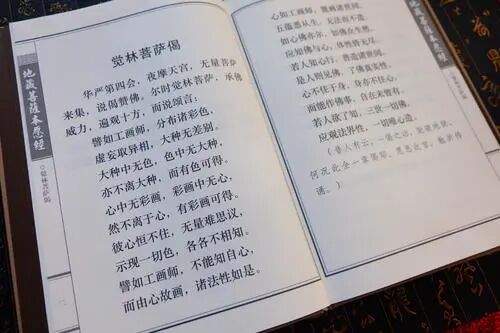 地藏菩薩本愿經
觉林菩萨偈
觉林菩萨偈
华严第四会，夜摩天宫，无量菩萨
来集，说偈赞佛。尔时觉林菩萨，承佛
威力，遍观十方，而说颂言：
譬如工画师，分布诸彩色，
虚妄取异相，大种无差别。
大种中无色，色中无大种，
亦不离大种，而有色可得。
心中无彩画，彩画中无心，
然不离于心，有彩画可得。
彼心恒不住，无量难思议，
示现一切色，各各不相知。
譬如工画师，不能知自心，
而由心故画，诸法性如是。
心如工画师，能画诸世间，
五蕴悉从生，无法而不造。
如心佛亦尔，如佛众生然，
应知佛与心，体性皆无尽。
若人知心行，普造诸世间，
是人则见佛，了佛真实性。
心不住于身，身亦不住心，
而能作佛事，自在未曾有。
若人欲了知，三世一切佛，
应观法界性，一切唯心造。
（昔人有云，一偈之功，能破地狱，
何况此全一章圣偈，思危此宜，勉旃持
诵。）
地藏菩薩本愿經